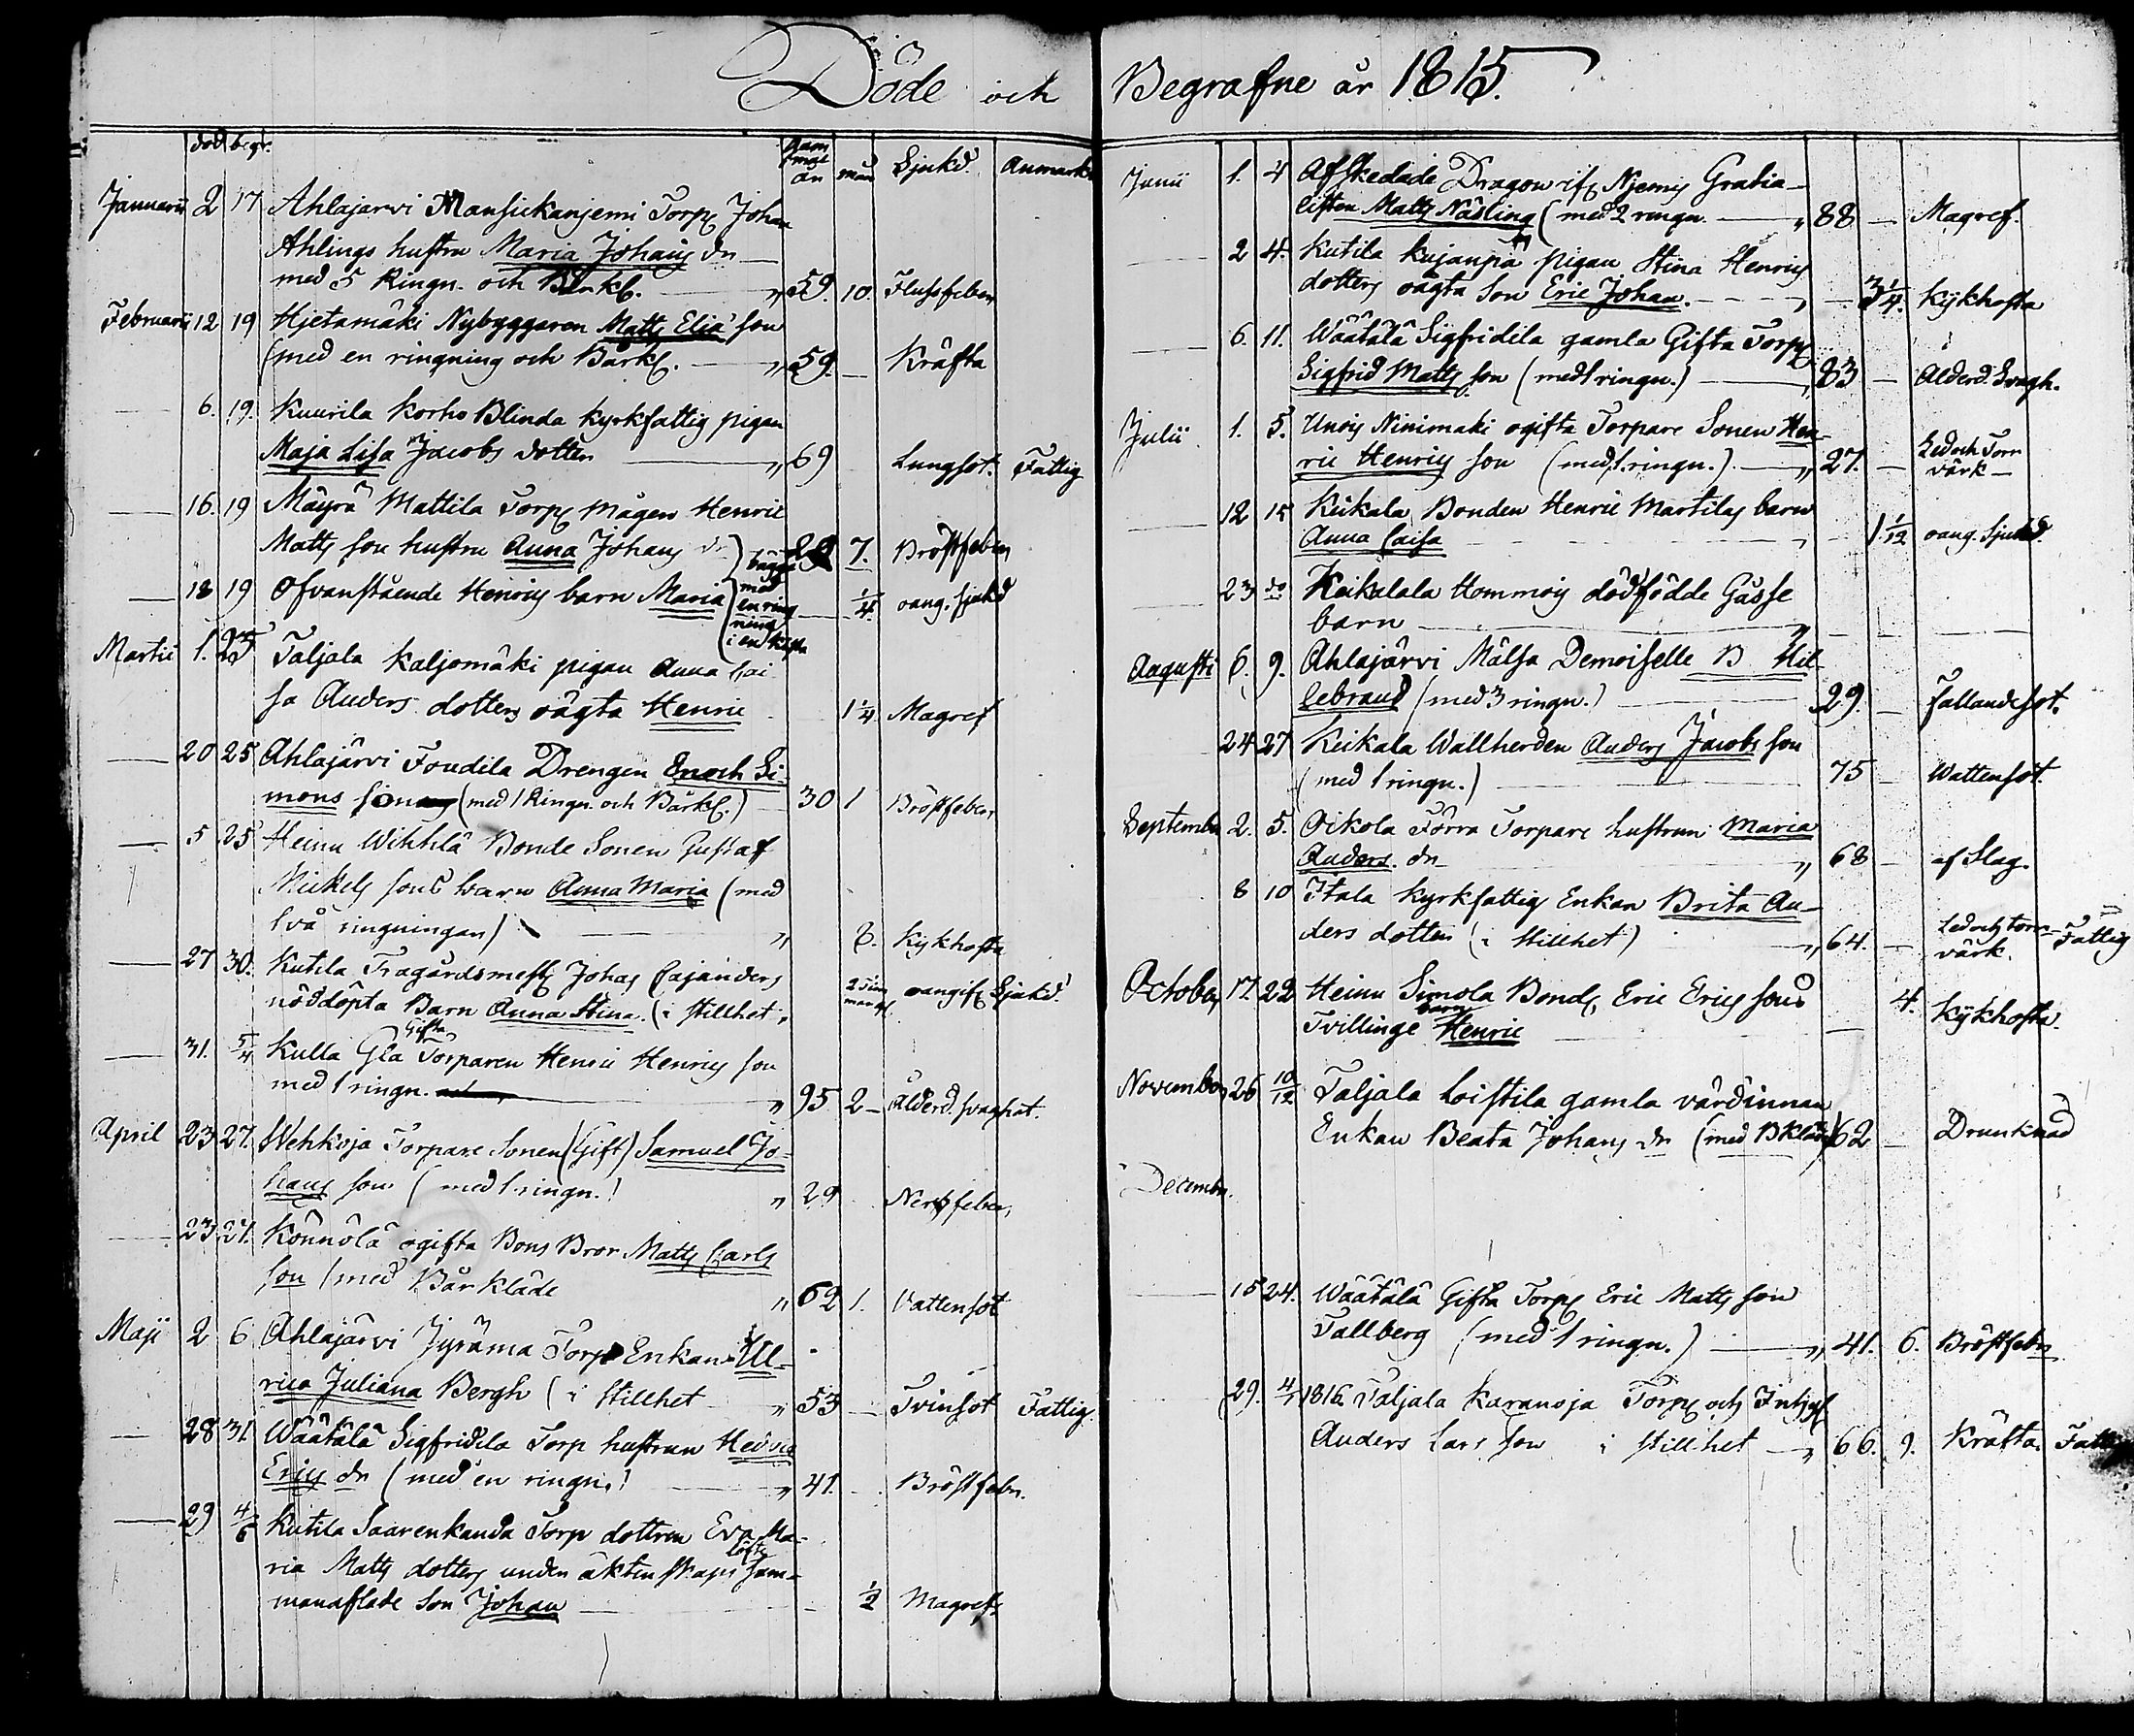 Döde och Begrafne år 1815.
död begr. år mån Sjukd. Anmärk
Januarii 2 17 Ahlajarvi Mansickanjemi Torp Johan
Ahlings hustru Maria Johans dr
med 5 Ringn. och Bårkl. 59. 10. Flussfeber
Februarii 12 19 Hjetamäki Nybyggaren Matts Elia son
(med en ringning och Bårkl. 59. Kräfta
6. 19. Kuurila Korho Blinda kyrkfattig pigan
Maja Lisa Jacobs dotter 69 Lungsot. Fattig
16. 19 Mäyrä Mattila Torp mågen Henric
Matts son hustru Anna Johans dr 7. Bröstfeber
bägge
18 19 Ofvanstående Henrics barn Maria 1/4. oang. sjukd
med
en ring
ning
i en kista
Martii 1. 25 Taljala Kaljomäki pigan Anna Cai
sa Anders dotters oägta Henric 1 1/4 Magref
20 25 Ahlajärvi Foudila Drengen Enoch Si-
mons son (med 1 Ringn. och Bårkl.) 30 1 Bröstfeber
5 25 Heinu Wihhlä Bonde Sonen Gustaf
Mickels sons barn Anna Maria (med
två ringningar) Kykhosta
27 30. Kutila Tragårdsmest Johas Cajanders
nöddöpta Barn Anna Stina. (i stillhet 2 Tim Sjukd.
31. 5/4 Kulla Gla Gifta Torparen Henric Henrics son
med 1 ringn. 95 2 Ålderd. svaghet.
April 23 27. Wehkoja Torpare Sonen (Gift) Samuel Jo-
hans son (med 1 ringn.) 29 Nervfeber
23 27. Könnölä ogifta Bons Bror Matts Carls
son (med Bårkläde 62 1. Vattensot
Maji 2 6 Ahlajärvi Jyräma Torp Enkan Ul-
rica Juliana Bergh (i stillhet 53 Tvinsot Fattig.
28 31 Wäätälä Sigfridila Torp hustrun Hedvig
Erics dr (med en ringn.) 41. Bröstfebr.
29 4/6 Kutila Saarenkanda Torp dottren Eva Ma-
ria Matts dotters under äktenskaps löfte sam-
manaflade son Johan 1/2 Magref
Junii 1. 4 Afskedade Dragon Njemis Gratia-
listen Matts Näsling (med 2 ringn. 88 Magref.
2 4. Kutila Kujanpä pigan Stina Henrics
dotters oägta son Eric Johan. 3 1/4. Kykhosta
6. 11. Wäätälä Sigfridila gamla Gifta Torp
Sigfrid Matts son (med 1 ringn.) 83 Ålderd. Svagh.
Julii 1. 5. Unois Ninimaki ogifta Torpare Sonen Hen-
ric Henrics son (med 1 ringn.) 27. Led och Torr
värk
12 15 Keikala Bonden Henric Martilas barn
Anna Caisa 1 1/12 oang. Sjukd.
23 do Keikalala Hommois dödfödde Gåsse
barn
Augusti 6. 9. Ahlajärvi Mälsa Demoiselle B Hil-
lebrand (med 3 ringn.) 29. fallandesot.
24 27 Keikala Wallherden Anders Jacobs son
(med 1 ringn.) 75 Wattensot.
September 2. 5. Oikola Törra Torpare hustrun Maria
Anders dr 68 af Slag.
8 10 Itala kyrkfattig Enkan Brita An-
ders dotter (i stillhet) 64. Led och torr Fattig
värk.
October 17. 22 Heinu Simola Bond, Eric Erics sons
Tvillinge barn Henric 4. Kykhosta
November 26 10/12 Taljala Loistila gamla värdinnan
Enkan Beata Johans dr (med Bkläde) 62 Drunknad
December.
15 24. Wäätälä Gifta Torp Eric Matts son
Tallberg (med 1 ringn.) 41. 6. Bröstfebr
29. 4/1 1816. Taljala Karanoja Torp och
Anders Lars son i stillhet 66. 9. Kräfta. Fattig